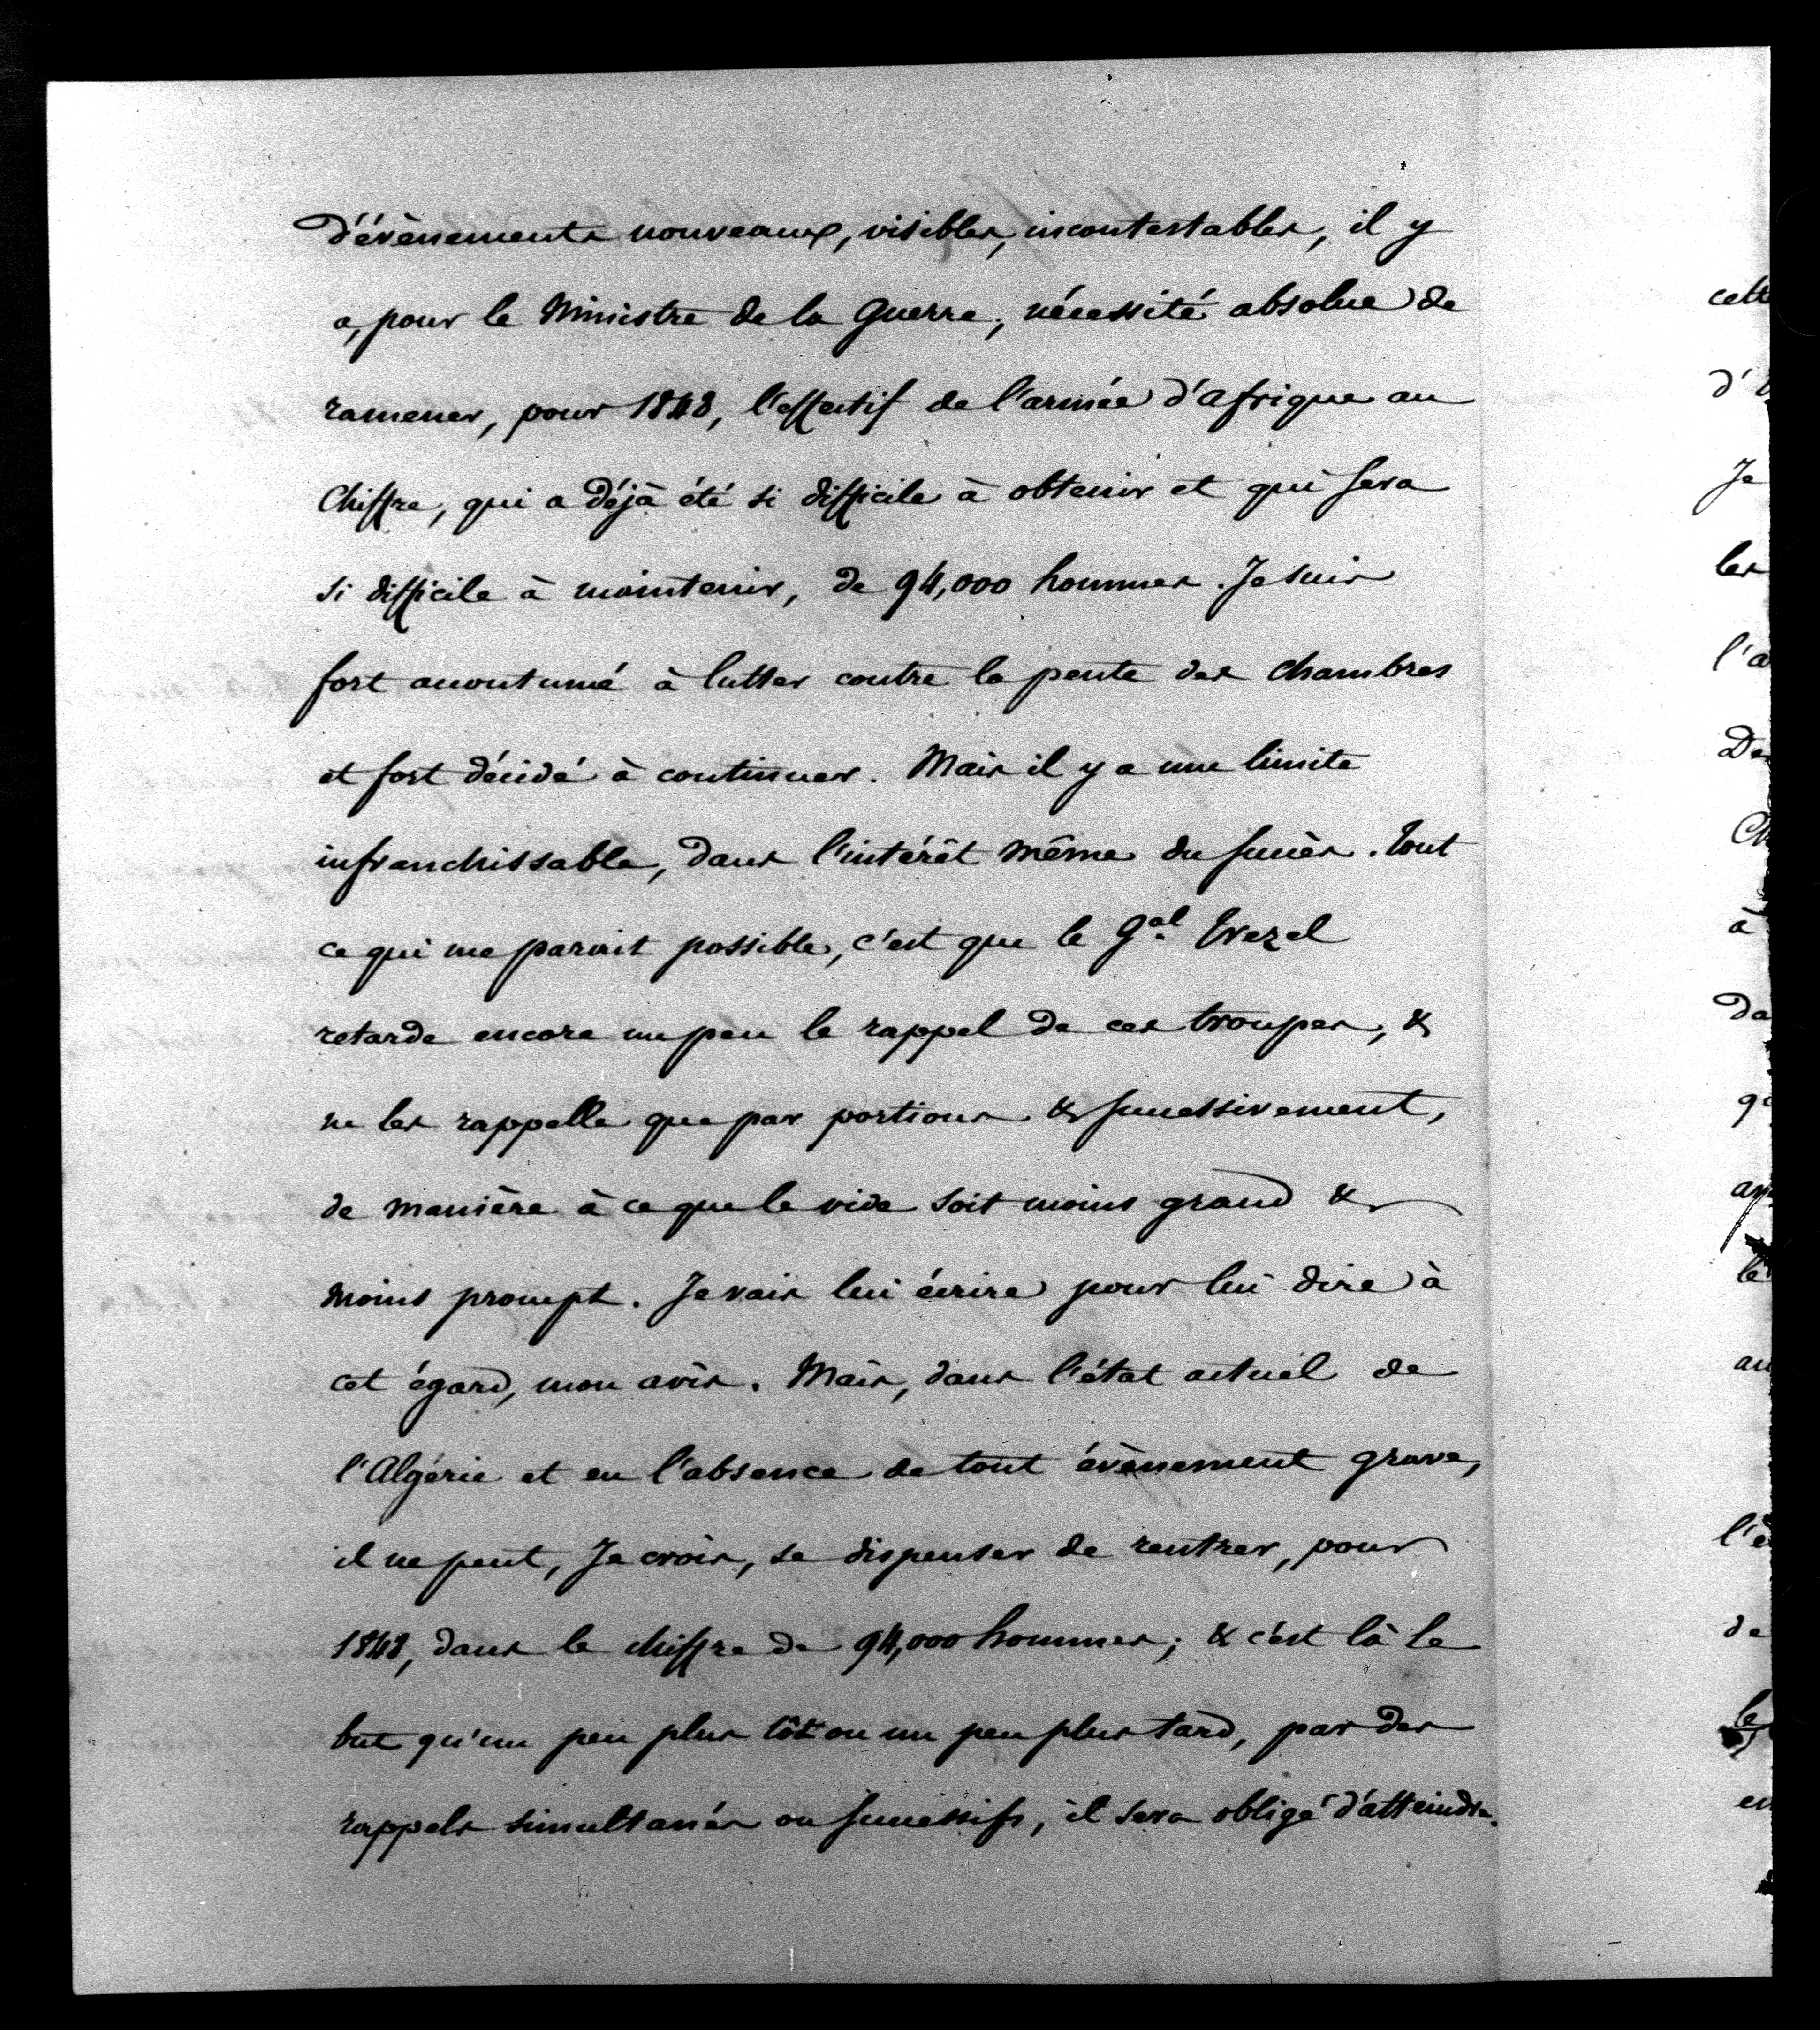 d'évènements nouveaux, visibles, incontestables, il y
a, pour le Ministre de la Guerre, nécessité absolue de
ramener, pour 1848, l'effectif de l'armée d'afrique au
Chiffre, qui a déjà été si difficile à obtenir et qui sera
si difficile à maintenir, de 94,000 hommes. Je suis
fort accoutumé à lutter contre la pente des Chambres
et fort décidé à continuer. Mais il y a une limite
infranchissable, dans l'intérêt même du succès. tout
ce qui me parait possible, c'est que le Gal Trezel
retarde encore un peu le rappel de ces troupes, &
ne les rappelle que par portions & successivement,
de manière à ce que le vide soit moins grand &
moins prompt. Je vais lui écrire pour lui dire à
cet égard, mon avis. Mais, dans l'état actuel de
l'Algérie et en l'absence de tout évènement grave,
il ne peut, Je crois, se dispenser de rentrer, pour
1848, dans le chiffre de 94,000 hommes; & c'est là le
but qu'un peu plus tôt ou un peu plus tard, par des
rappels simultanés ou successifs, il sera obligé d'atteindre.
cett
d'
Je
les
l'a
De
Ch
à
da
le
au
l'é
de
le
en